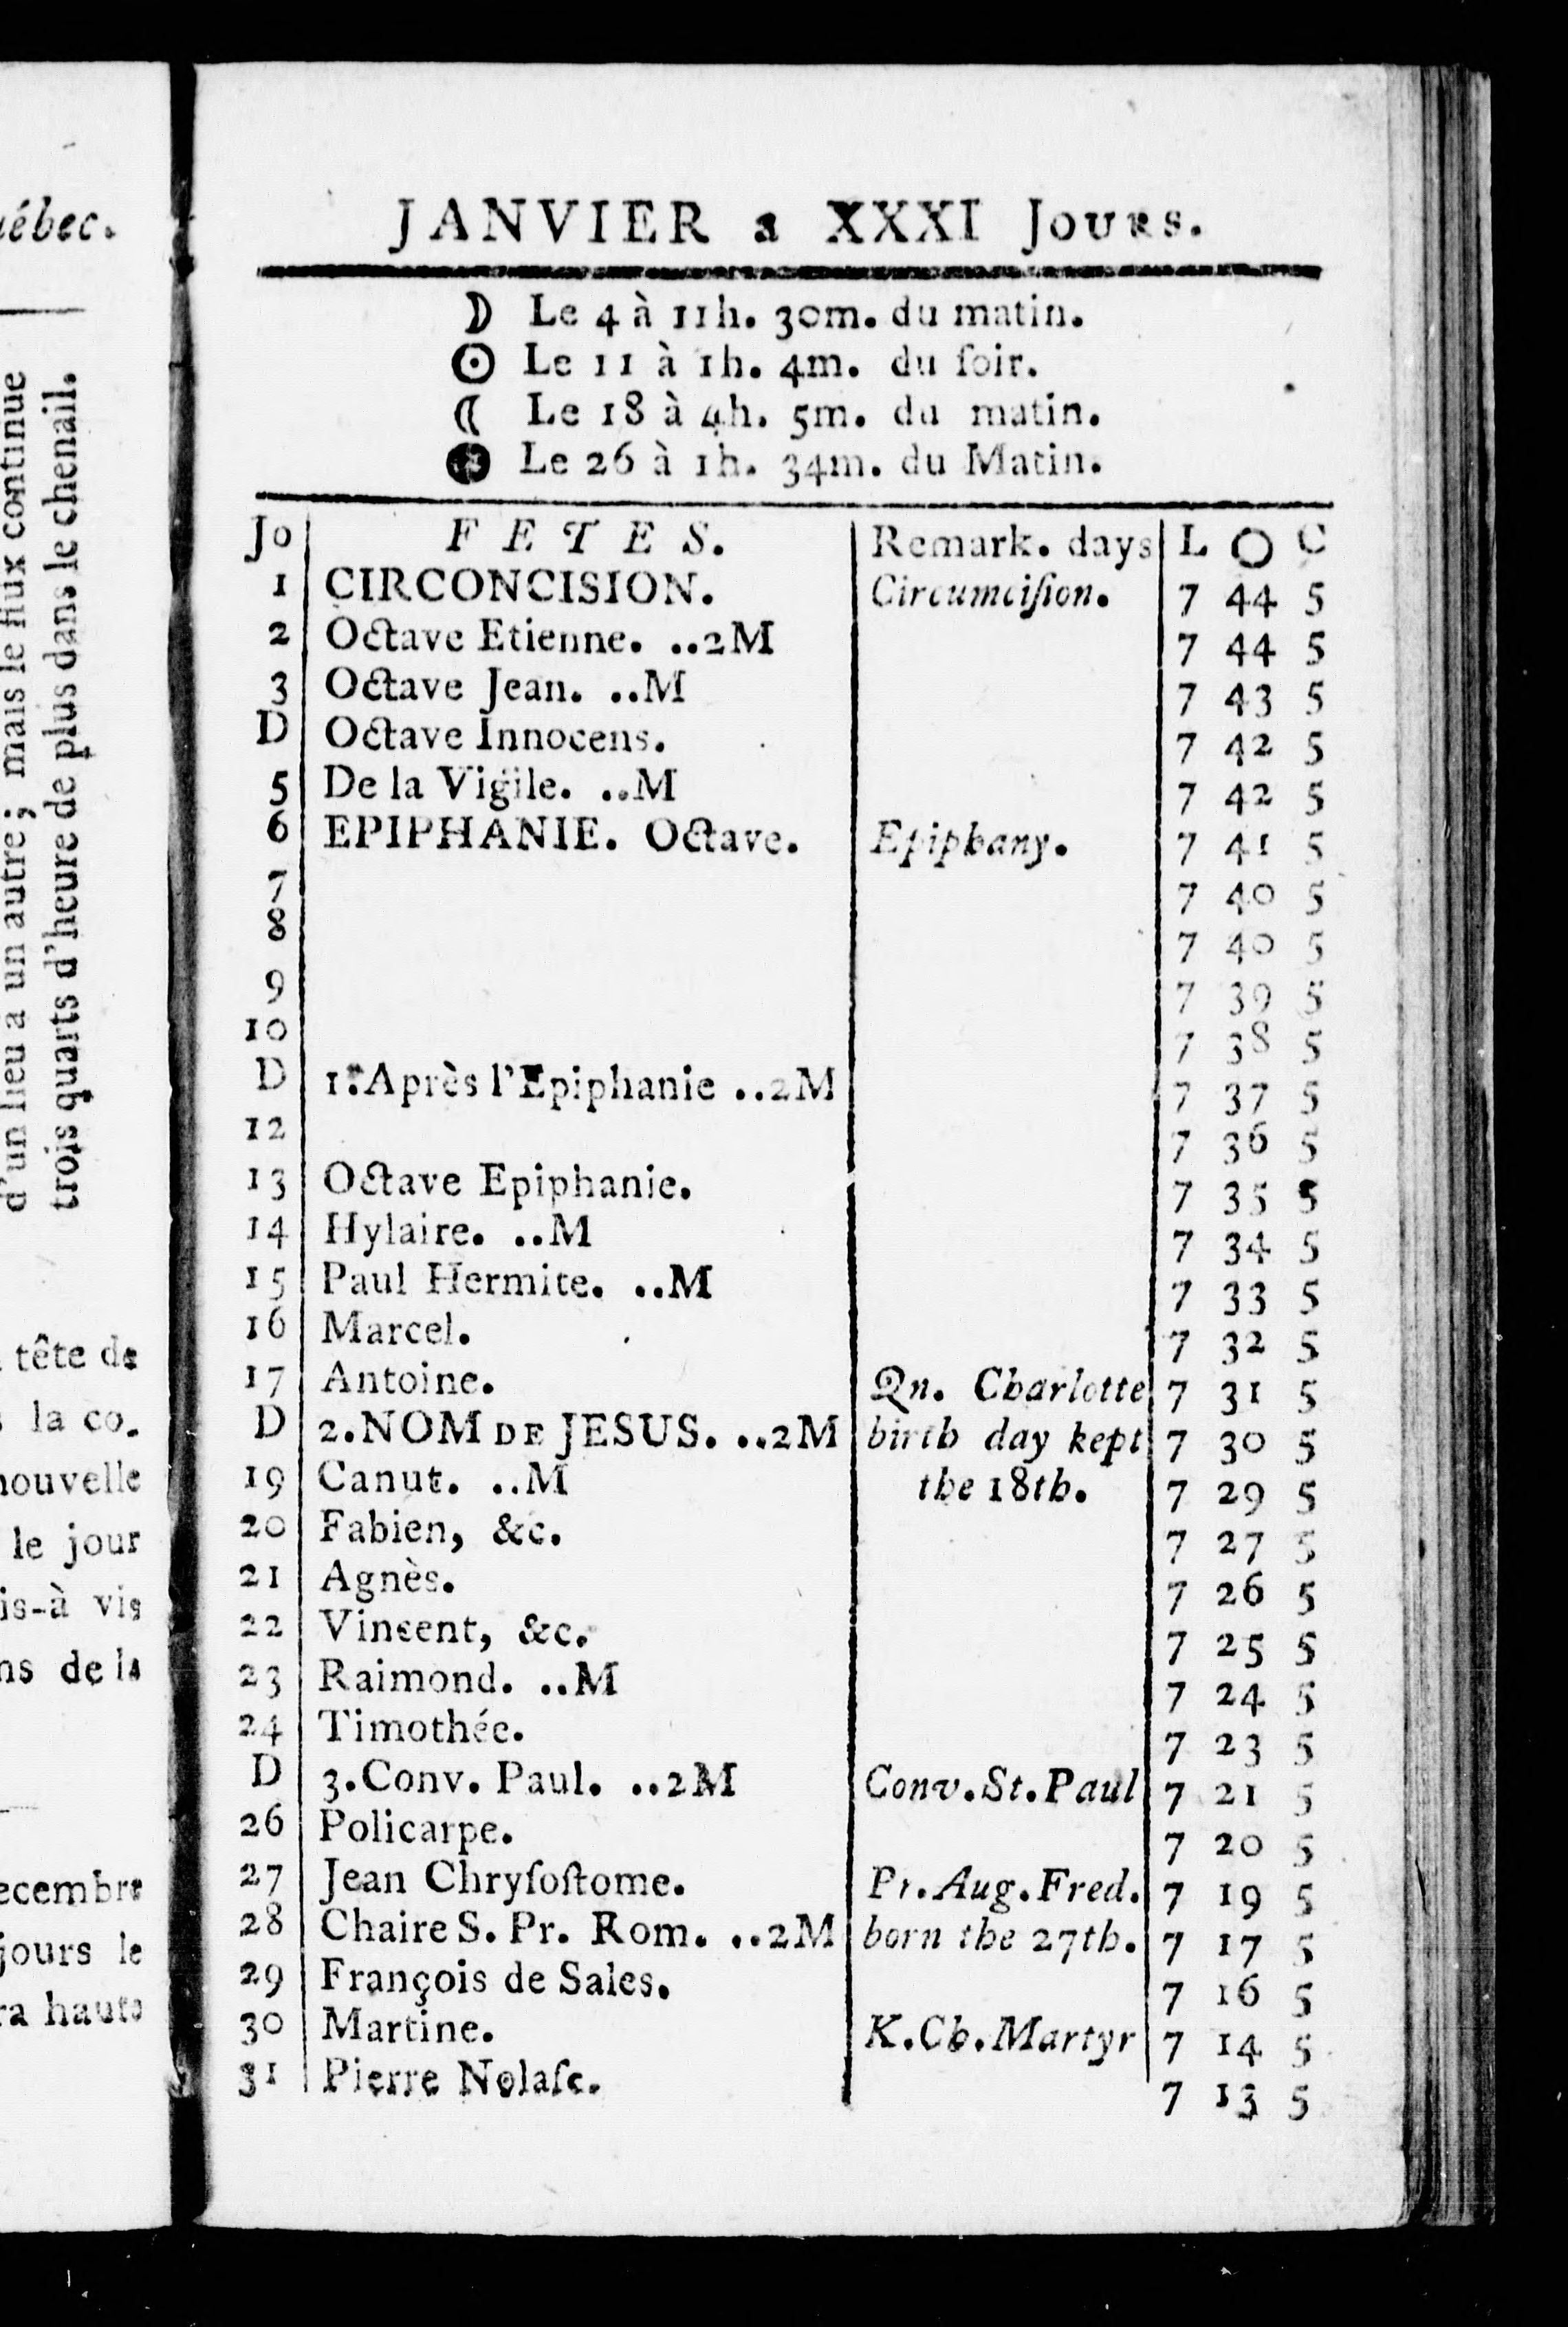 uébec.
d'un lieu a un autre; mais le flux continue
trois quarts d'heure de plus dans le chenail.
tête de
la co.
nouvelle
le jour
is-à vis
ns de la
ecembre
jours le
ra haute
JANVIER a XXXI Jours.
☽ Le 4 à 11h. 30m. du matin.
☉ Le 11 à 1h. 4m. du ſoir.
☾ Le 18 à 4h. 5m. du matin.
● Le 26 à 1h. 34m. du Matin.
Jo FETES. Remark. days L O C
1 CIRCONCISION. Circumciſion. 7 44 5
2 Octave Etienne. ..2M 7 44 5
3 Octave Jean. ..M 7 43 5
D Octave Innocens. 7 42 5
5 De la Vigile. ..M 7 42 5
6 EPIPHANIE. Octave. Epiphany. 7 41 5
7 7 40 5
8 7 40 5
9 7 39 5
10 7 38 5
D 1. Après l'Epiphanie ..2M 7 37 5
12 7 36 5
13 Octave Epiphanie. 7 35 5
14 Hylaire. ..M 7 34 5
15 Paul Hermite. ..M 7 33 5
16 Marcel. 7 32 5
17 Antoine. Qn. Charlotte 7 31 5
D 2.NOM DE JESUS. ..2M birth day kept 7 30 5
19 Canut. ..M the 18th. 7 29 5
20 Fabien, &c. 7 27 5
21 Agnès. 7 26 5
22 Vincent, &c. 7 25 5
23 Raimond. ..M 7 24 5
24 Timothée. 7 23 5
D 3.Conv. Paul. ..2M Conv.St.Paul 7 21 5
26 Policarpe. 7 20 5
27 Jean Chryſoſtome. Pr.Aug.Fred. 7 19 5
28 Chaire S. Pr. Rom. ..2M born the 27th. 7 17 5
29 François de Sales. 7 16 5
30 Martine. K.Ch.Martyr 7 14 5
31 Pierre Nolaſc. 7 13 5